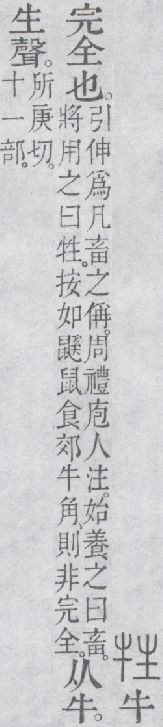 牲 牛
完全也。引伸爲凡畜之偁。周禮庖人注。始養之曰畜。將用之曰牲。按如鼷鼠食郊牛角、則非完全。从牛。
生聲。所庚切。十一部。